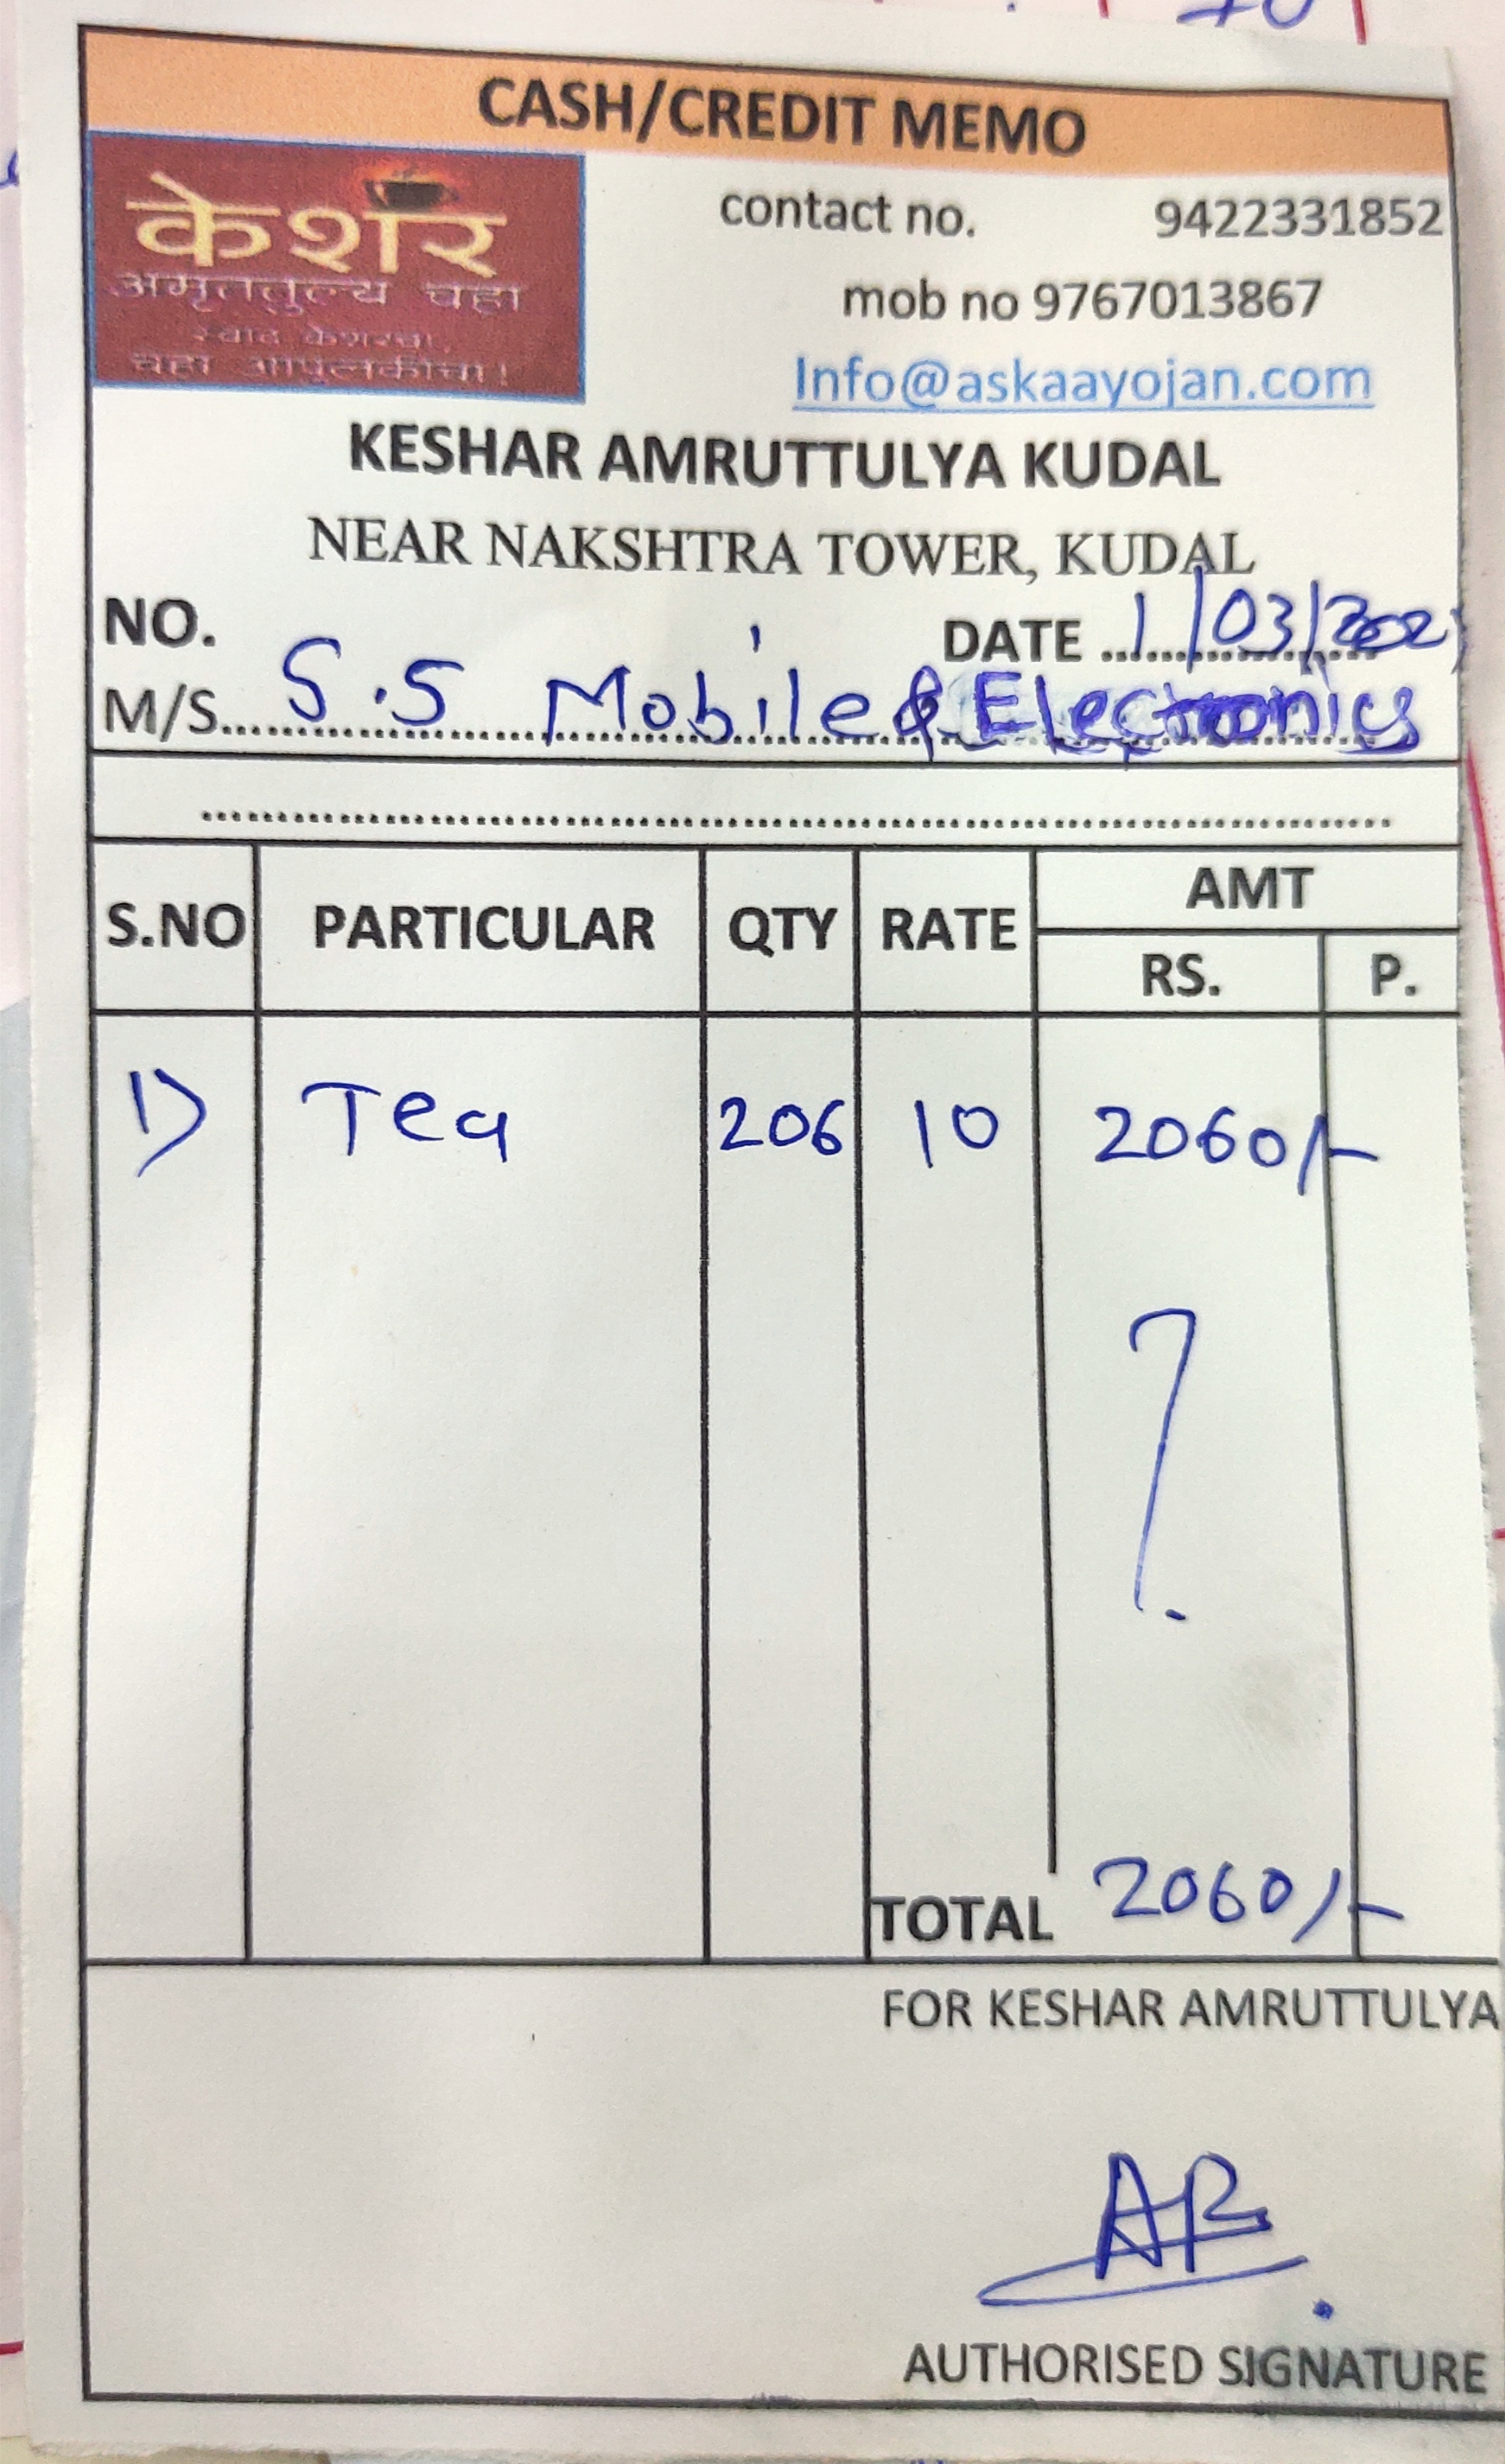 CASH/CREDIT MEMO
केशर
अमृततुल्य चहा
स्वाद केशरचा,
चहा आपुलकीचा!
contact no. 9422331852
mob no 9767013867
Info@askaayojan.com
KESHAR AMRUTTULYA KUDAL
NEAR NAKSHTRA TOWER, KUDAL
NO. DATE 1/03/202
M/S. S.S Mobile & Electronics
S.NO PARTICULAR QTY RATE AMT
RS. P.
1) Tea 206 10 2060/-
TOTAL 2060/-
FOR KESHAR AMRUTTULYA
AR
AUTHORISED SIGNATURE